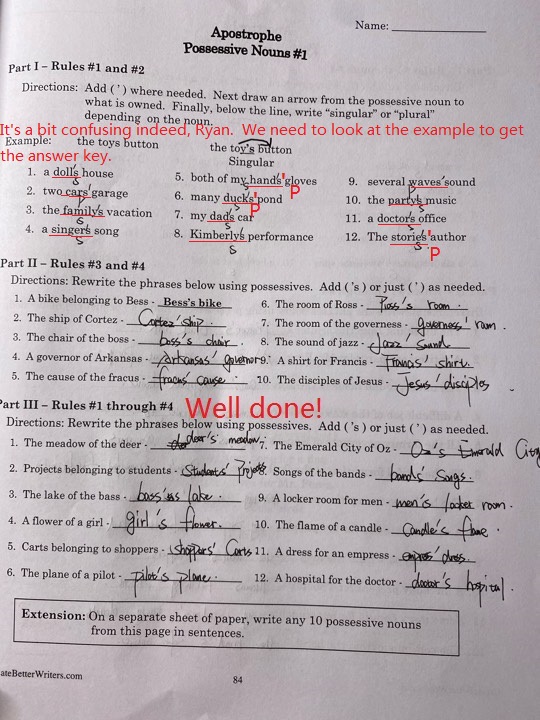 Name:
Apostrophe
Possessive Nouns #1
Part I – Rules #1 and #2
Directions: Add (’) where needed. Next draw an arrow from the possessive noun to
what is owned. Finally, below the line, write “singular” or “plural”
depending on the noun.
It's a bit confusing indeed, Ryan. We need to look at the example to get
the answer key.
Example: the toys button
the toy’s button
Singular
1. a doll's house
S
2. two cars' garage
P
3. the family's vacation
S
4. a singer's song
S
5. both of my hands' gloves
S P
6. many ducks' pond
S P
7. my dad's car
S
8. Kimberly's performance
S
9. several waves' sound
P
10. the party's music
S
11. a doctor's office
S
12. The stories' author
S P
Part II – Rules #3 and #4
Directions: Rewrite the phrases below using possessives. Add (’s) or just (’) as needed.
1. A bike belonging to Bess - Bess’s bike
2. The ship of Cortez - Cortez' ship.
3. The chair of the boss - boss's chair.
4. A governor of Arkansas - Arkansas' governor
5. The cause of the fracus - fracus' cause.
6. The room of Ross - Ross's room.
7. The room of the governess - governess' room.
8. The sound of jazz - Jazz' Sound
9. A shirt for Francis - Francis' shirt.
10. The disciples of Jesus - Jesus' disciples
Part III – Rules #1 through #4
Well done!
Directions: Rewrite the phrases below using possessives. Add (’s) or just (’) as needed.
1. The meadow of the deer - deer's meadow.
2. Projects belonging to students - Students' Projects.
3. The lake of the bass - lake.
4. A flower of a girl - girl's flower.
5. Carts belonging to shoppers - shoppers' Carts
6. The plane of a pilot - pilot's plane.
7. The Emerald City of Oz - Oz's Emerald City
8. Songs of the bands - bands' Songs.
9. A locker room for men - men's locker room.
10. The flame of a candle - Candle's flame.
11. A dress for an empress - empress' dress.
12. A hospital for the doctor - doctor's hospital.
Extension: On a separate sheet of paper, write any 10 possessive nouns
from this page in sentences.
ateBetterWriters.com
84